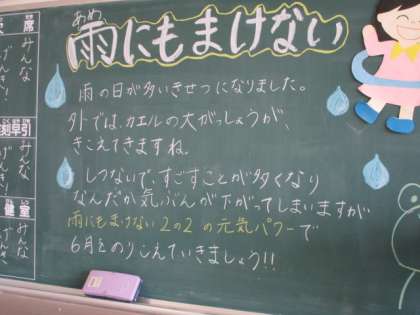 あめ
雨にもまけない
雨の日が多いきせつになりました。
外では、カエルの大がっしょうが、
きこえてきますね。
しつないで、すごすことが多くなり
なんだか気ぶんが下がってしまいますが
雨にもまけない2の2の元気パワーで
6月をのりこえていきましょう!!
席
みんな
げんき!
刻早引
みんな
みんな